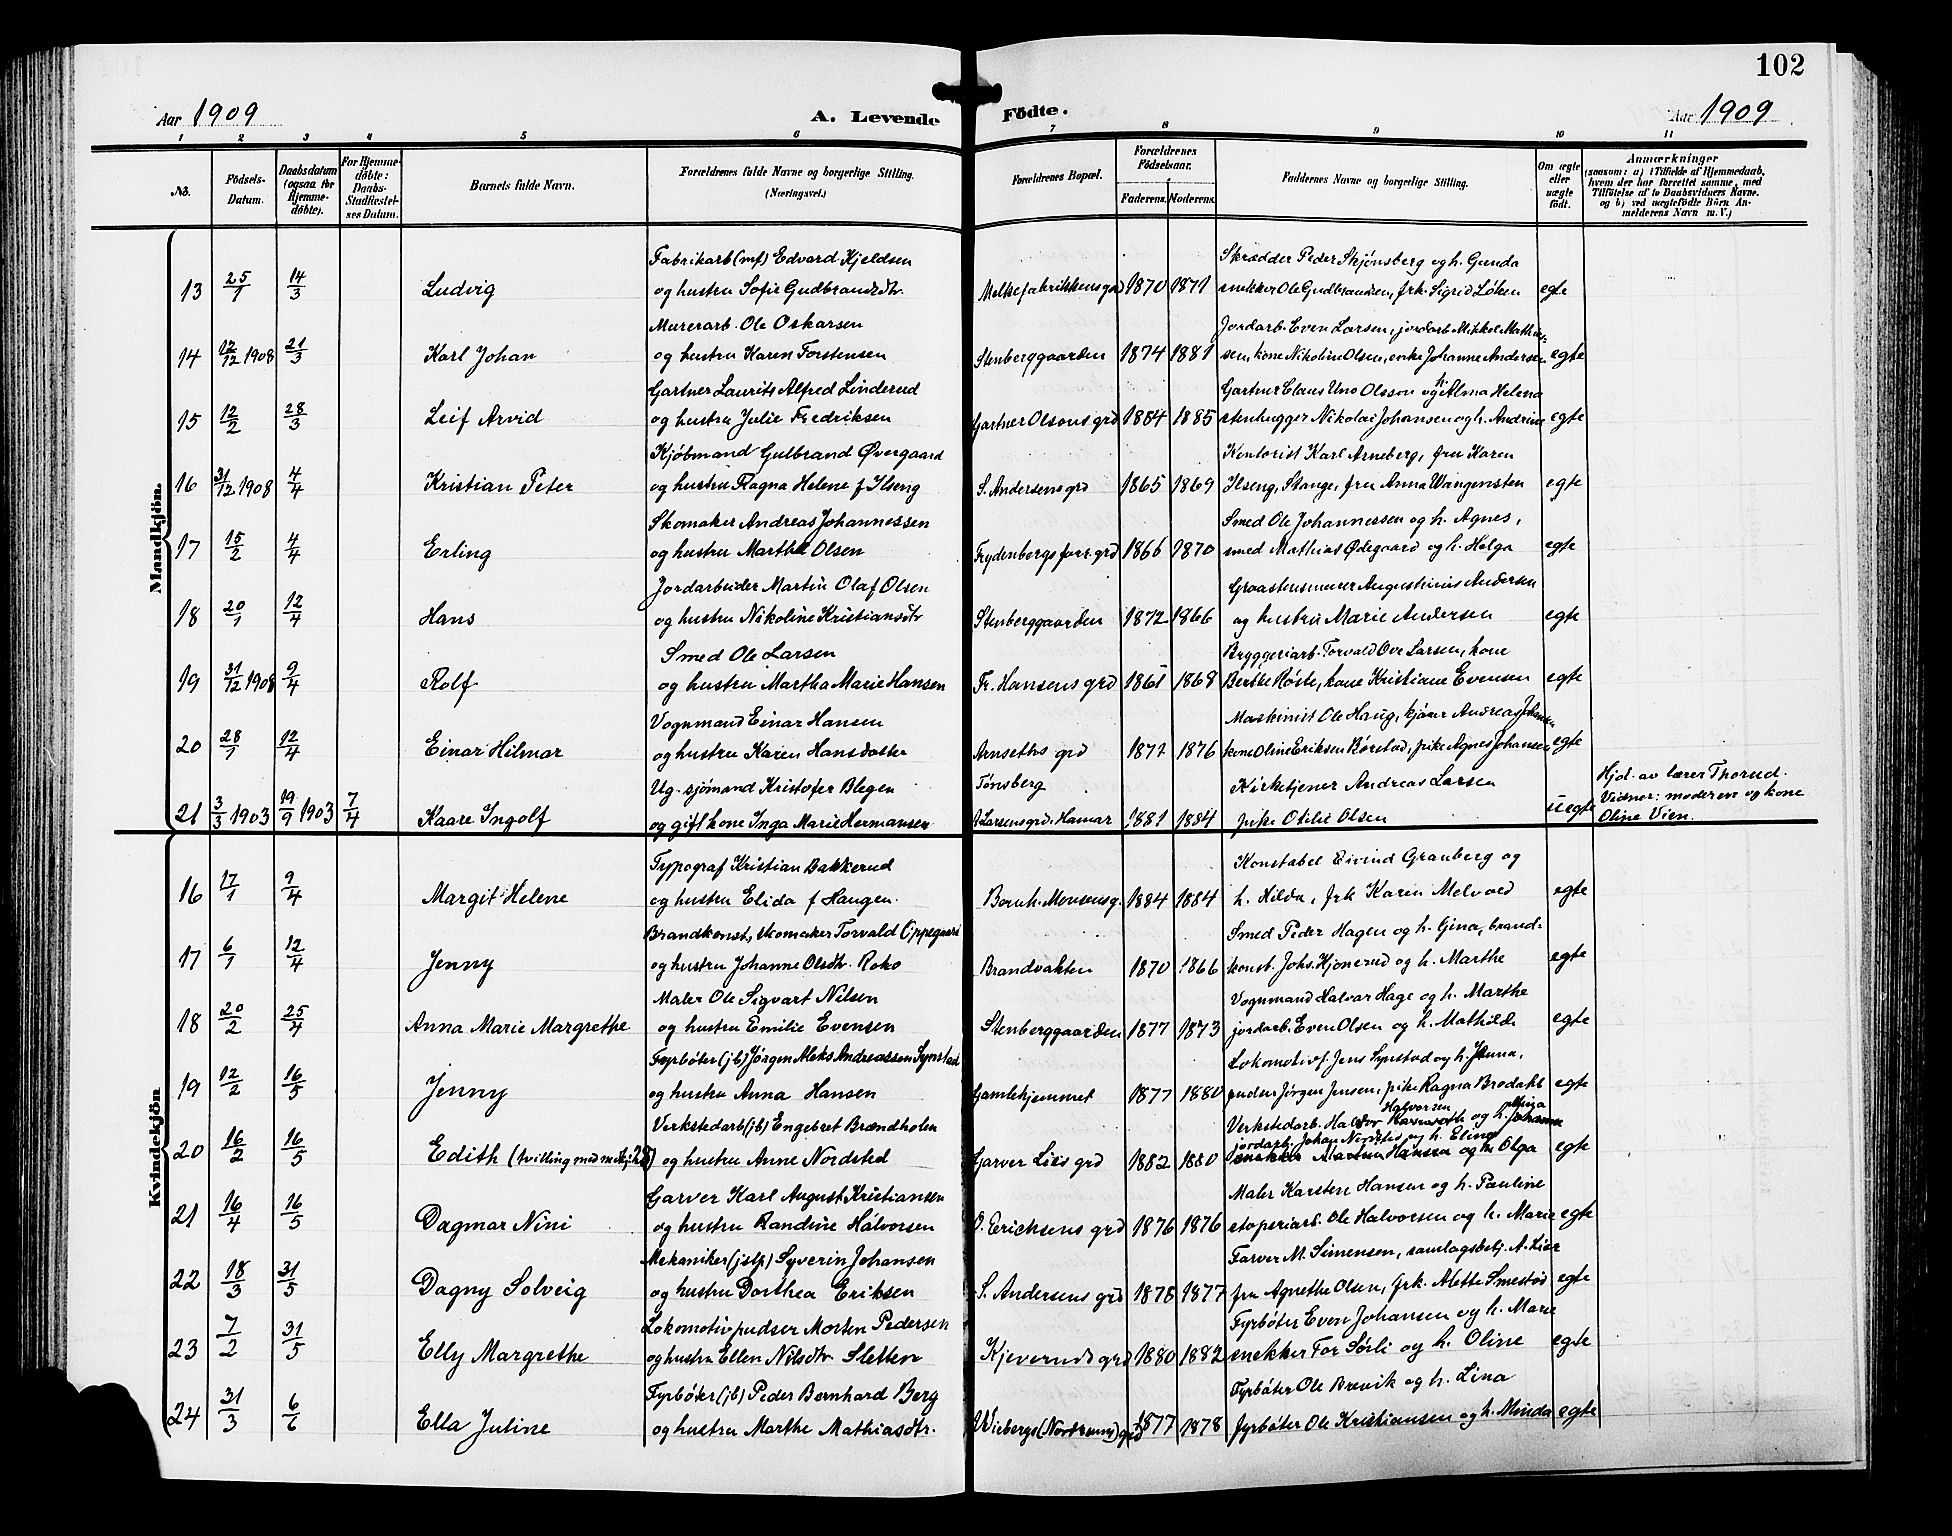 102
Aar 1909 A. Levende Födte. Aar 1909
1 2 3 4 5 6 7 8 9 10 11
No. Födsels-Datum. Daabsdatum (ogsaa for Hjemme-döbte). For Hjemme-döbte: Daabs-Stadfæstel-ses Datum. Barnets fulde Navn. Forældrenes fulde Navne og borgerlige Stilling. (Næringsvei.) Forældrenes Bopæl. Forældrenes Födselsaar. Faderens. Moderens. Faddernes Navne og borgerlige Stilling. Om ægte eller uægte födt. Anmærkninger (saasom: a) i Tilfælde af Hjemmedaab, hvem der har forrettet samme, med Tilföielse af to Daabsvidners Navne. og b) ved uægtefödte Börn An-melderens Navn m. V.)
Mandkjön.
Fabrikarb (mf) Edvard Kjeldsen Skrædder Peder Skjønsberg og h. Gunda
13 25/1 14/3 Ludvig og hustru Sofie Gudbrandsdtr. Melkefabrikkens grd 1870 1871 snekker Ole Gudbrandsen, frk. Sigrid Løken egte
Murerarb. Ole Oskarsen Jordarb. Even Larsen, jordarb Mikkel Mathie-
14 12/12 1908 21/3 Karl Johan og hustru Karen Torstensen Stenberggaarden 1874 1881 sen, kone Nikoline Olsen, enke Johanne Andersen egte
Gartner Laurits Alfred Linderud Gartner Claus Uno Olsson og h. Alma Helena
15 12/2 28/3 Leif Arvid og hustru Julie Fredriksen Gartner Olsons grd 1884 1885 stenhugger Nikolai Johansen og h. Andrine egte
Kjøbmand Gulbrand Øvergaard Kontorist Karl Arneberg, fru Karen
16 31/12 1908 4/4 Kristian Peter og hustru Ragna Helene f Ilseng S. Andersens grd 1865 1869 Ilseng, Stange, fru Anna Wangensten egte
Skomaker Andreas Johannessen Smed Ole Johannessen og h. Agnes,
17 15/2 4/4 Erling og hustru Marthe Olsen Frydenbergs forr. grd 1866 1870 smed Mathias Ødegaard og h. Helga egte
Jordarbeider Martin Olaf Olsen Graastensmurer Augustinius Andersen
18 20/1 12/4 Hans og hustru Nikoline Kristiansdtr Stenberggaarden 1872 1866 og hustru Marie Andersen egte
Smed Ole Larsen Bryggeriarb. Torvald Ove Larsen, kone
19 31/12 1908 9/4 Rolf og hustru Martha Marie Hansen Fr. Hansens grd 1865 1868 Berthe Røste, kone Kristiane Evensen egte
Vognmand Einar Hansen Maskinist Ole Haug, kjører Andreas Johansen
20 28/1 12/4 Einar Hilmar og hustru Karen Hansdatter Arnseths grd 1877 1876 kone Oline Eriksen Børstad, pike Agnes Johansen egte
Ug. sjømand Kristofer Blegen Tønsberg Kirketjener Andreas Larsen Hjd. av lærer Thorud.
21 3/3 1903 19/9 1903 7/4 Kaare Ingolf og gift kone Inga Marie Hermansen Larsens grd. Hamar 1881 1884 pike Otilie Olsen uegte Vidner: moderen og kone Oline Vien.
Kvindekjön
Typograf Kristian Bakkerud Konstabel Eivind Granberg og
16 17/1 9/4 Margit Helene og hustru Elida f Haugen. Bernh. Monsens g. 1884 1884 h. Hilda, frk Karen Melvold egte
Brandkonst, skomaker Torvald Oppegaard Smed Peder Hagen og h. Gina, brand-
17 6/1 12/4 Jenny og hustru Johanne Olsdtr. Roko Brandvakten 1870 1866 konst. Johs. Hjonerud og h. Marthe egte
Maler Ole Sigvart Nilsen Vognmand Halvar Hage og h. Marthe
18 20/2 25/4 Anna Marie Margrethe og hustru Emilie Evensen Stenberggaarden 1877 1873 jordarb. Even Olsen og h. Mathilde egte
Fyrbøter (jb) Jørgen Aleks Andreassen Synstad Lokomotivf. Jens Synstad og h. Jenna,
19 12/2 16/5 Jenny og hustru Anna Hansen Gamlehjemmet 1877 1880 pudser Jørgen Jensen, pike Ragna Brodahl egte
Verkstedarb (jb) Engebret Brændholen Verkstedarb. Halvor Halvorsen og h. Johanna
jordarb. Johan Nordsted og h. Eline
20 16/2 16/5 Edith (tvilling med og hustru Anne Nordsted Garver Lies grd 1882 1880 snekker Hansen og h. Olga egte
Garver Karl August Kristiansen Maler Karsten Hansen og h. Pauline
21 16/4 16/5 Dagmar Nini og hustru Randine Halvorsen O. Ericksens grd 1876 1876 støperiarb. Ole Halvorsen og h. Marie egte
Mekaniker (jstp) Syverin Johansen Farver M. Simensen, samlagsbetj. A. Lier
22 18/3 31/5 Dagny Solveig og hustru Dorthea Eriksen S. Andersens grd 1878 1877 fru Agnethe Olsen, frk. Alette Smestad egte
Lokomotivpudser Morten Pedersen Fyrbøter Even Johansen og h. Marie
23 7/2 31/5 Elly Margrethe og hustru Ellen Nilsdtr Sletten Kjeveruds grd 1880 1882 snekker Tor Sørli og h. Oline egte
Fyrbøter (jb) Peder Bernhard Berg Fyrbøter Ole Brevik og h. Lina
24 31/3 6/6 Ella Juline og hustru Marthe Mathiasdtr. Wiebergs (Nordrums) grd 1877 1878 fyrbøter Ole Kristiansen og h. Minda egte